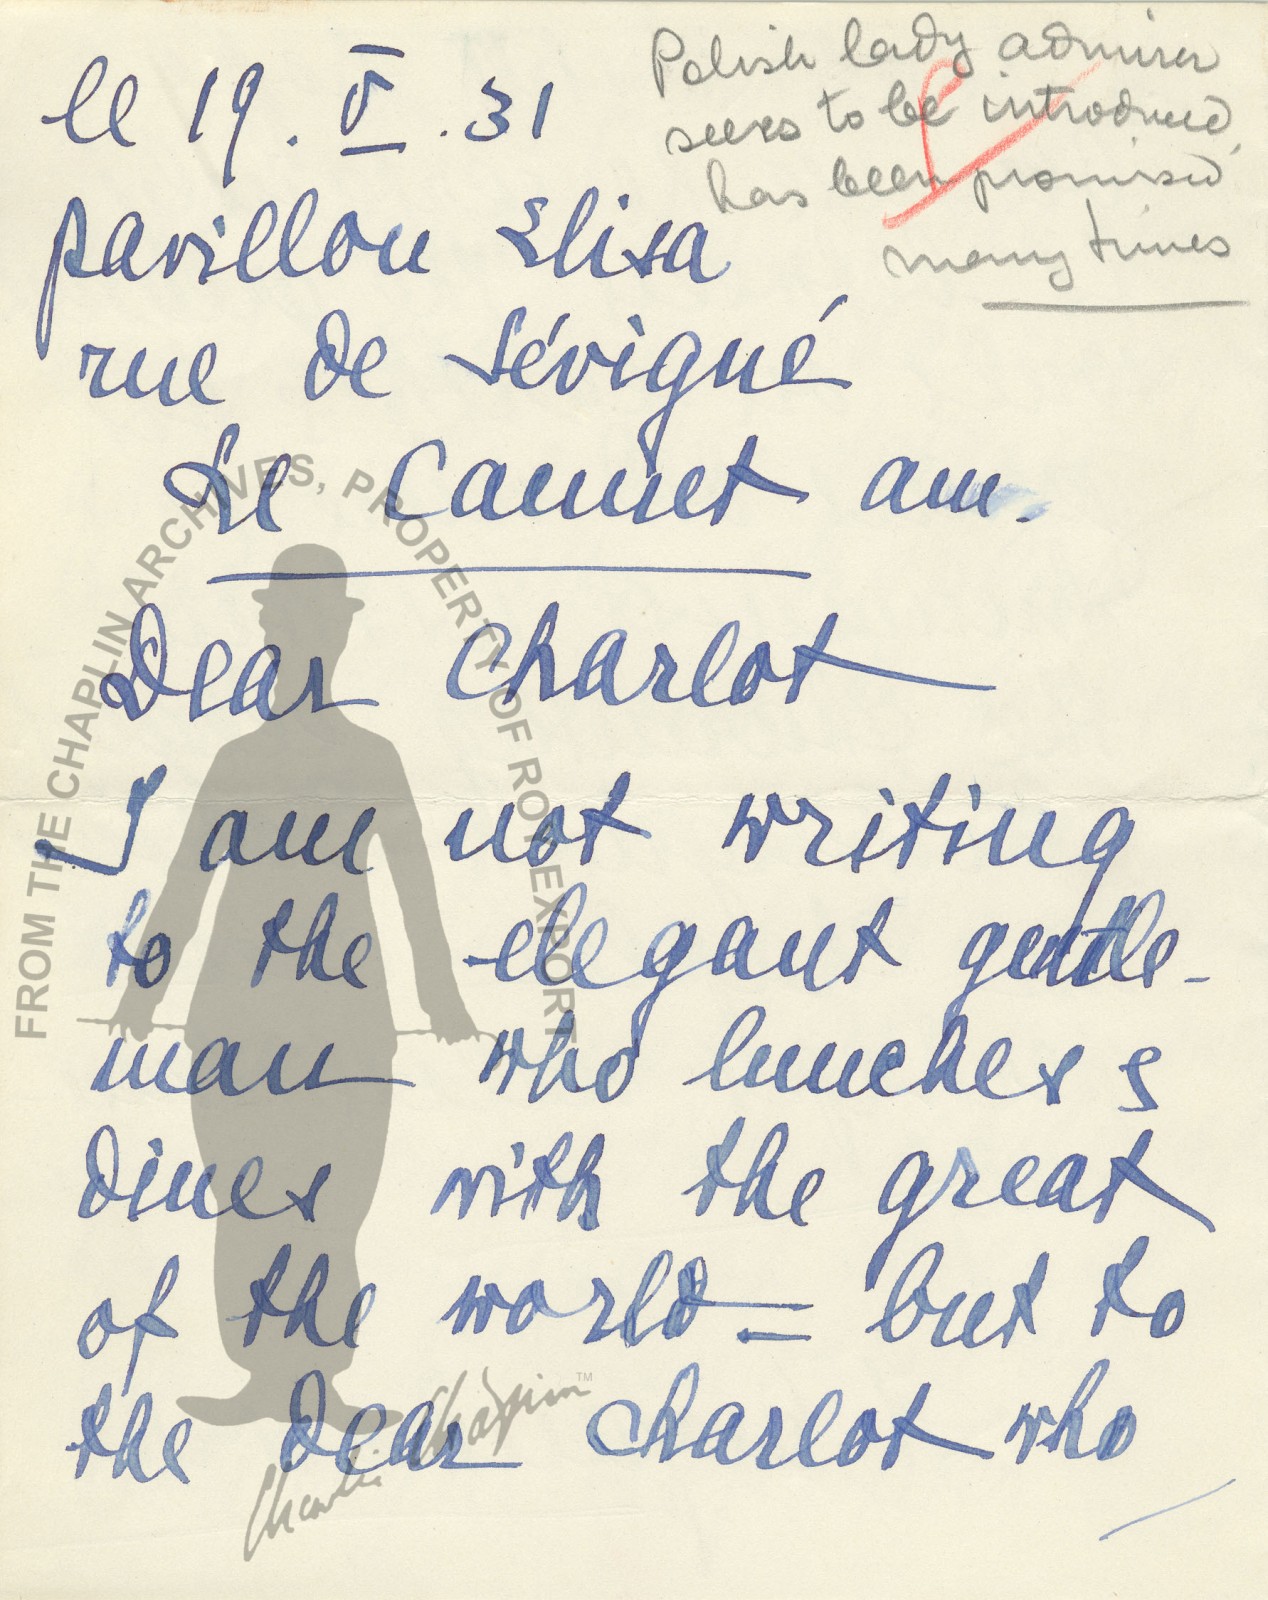 Polish lady admirer
seeks to be introduced,
has been promised
many times
le 19. V. 31
pavillon Elisa
rue de Sévigné
Le Cannet am.
Dear Charlot
I am not writing
to the elegant gentle-
man who lunches &
dines with the great
of the world = but to
the dear Charlot who
FROM THE CHAPLIN ARCHIVES, PROPERTY OF ROY EXPORT
Charlie Chaplin™